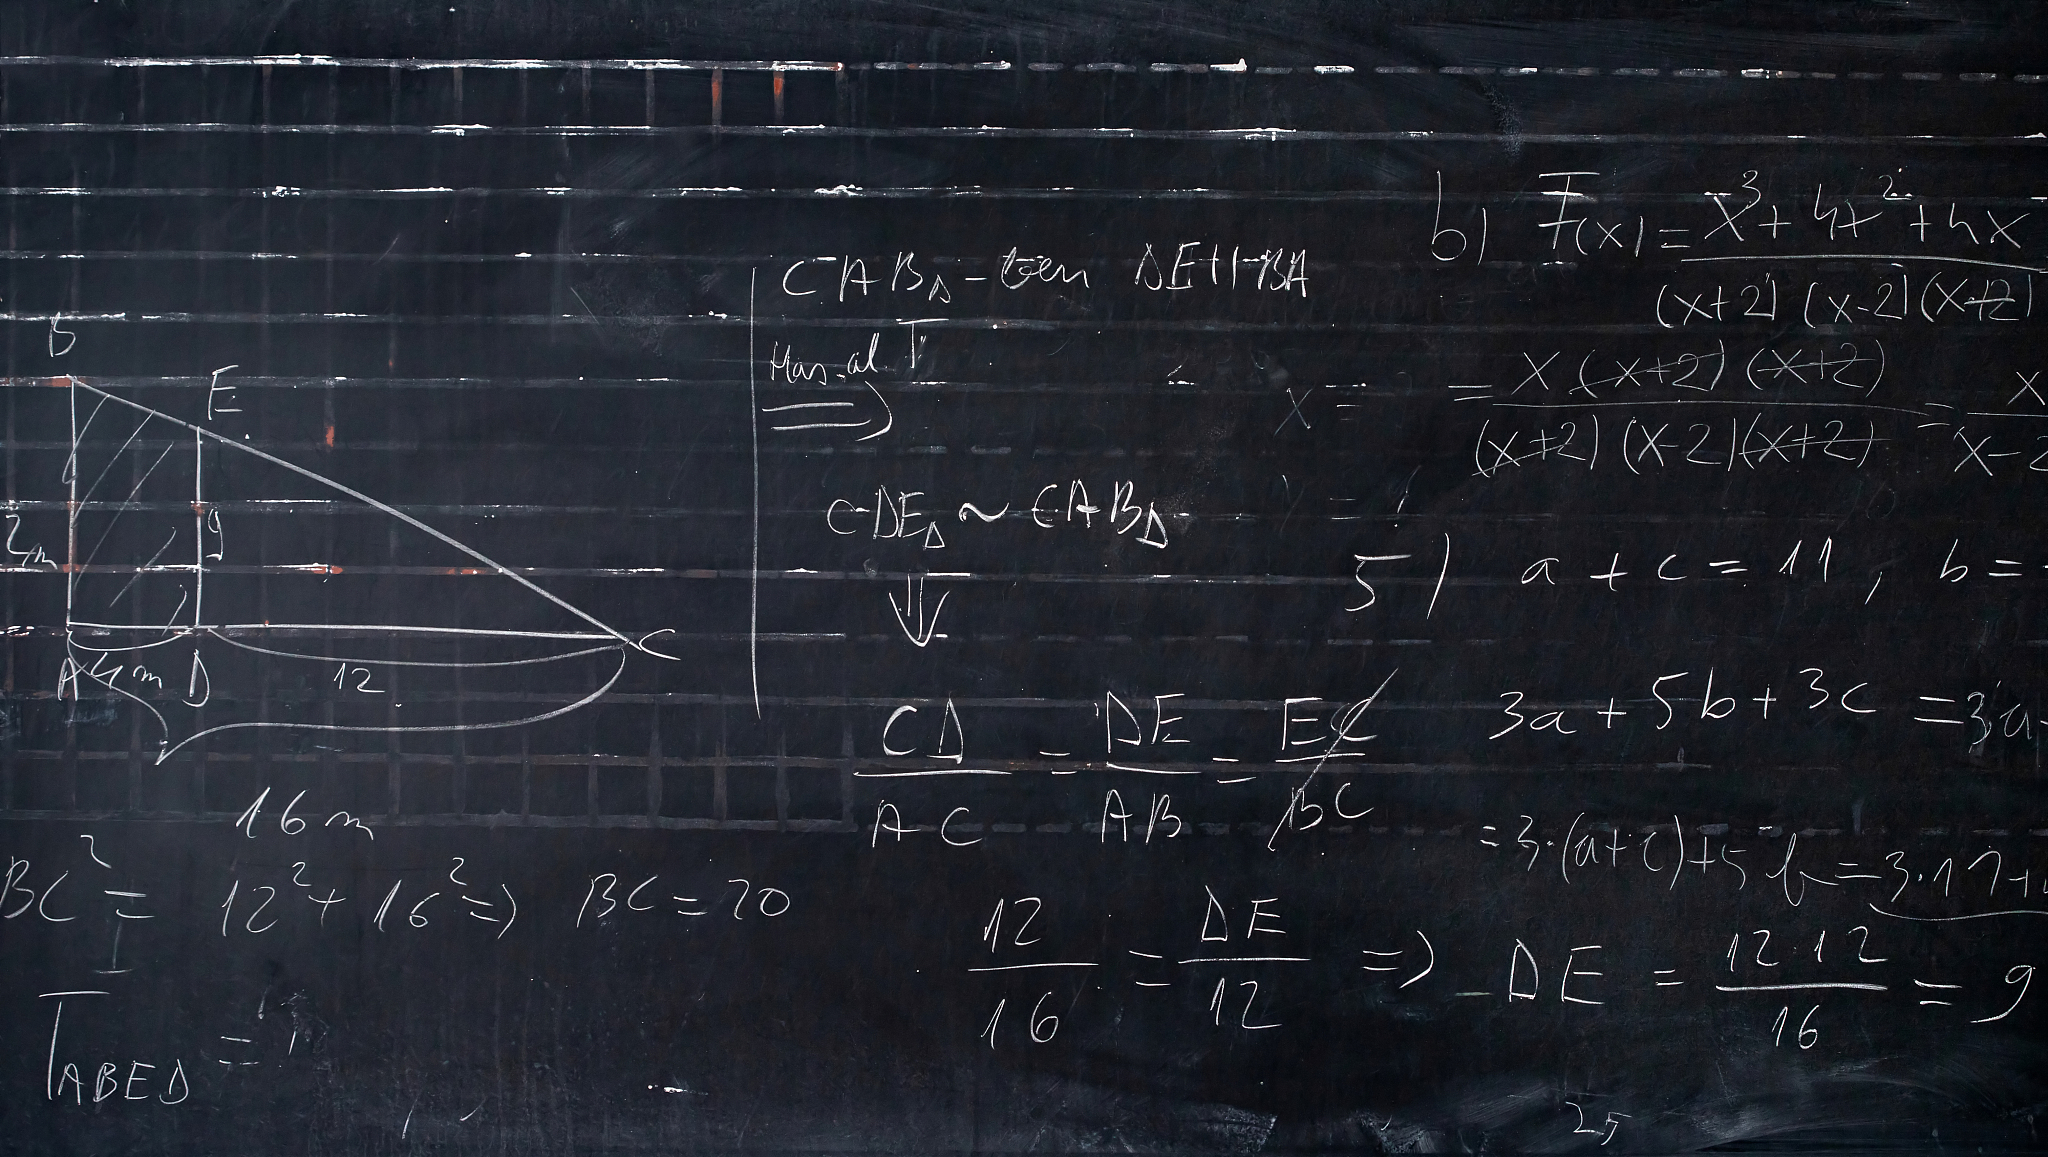 B
E
2m
9
A 4m D
12
C
16 m
BC² = 12² + 16² => BC = 20
T_ABED =
CAB_Δ - ben DE || BA
Has. al T
=>
CDE_Δ ~ CAB_Δ
⇓
CD/AC = DE/AB = EC/BC
12/16 = DE/12 => DE = 12·12/16 = 9
b) F(x) = x³ + 4x² + 4x / (x+2)(x-2)(x+2)
= x(x+2)(x+2) / (x+2)(x-2)(x+2) = x / x-2
x =
5) a + c = 11, b =
3a + 5b + 3c = 3·a
= 3·(a+c) + 5b = 3·11+
25